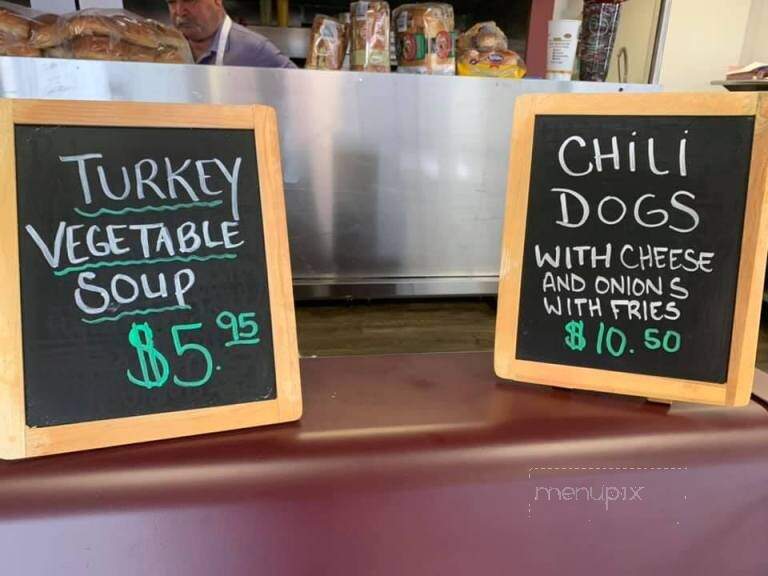 TURKEY
VEGETABLE
SOUP
$5.95
CHiLi
DOGS
WITH CHEESE
AND ONIONS
WITH FRIES
$10.50
menupix